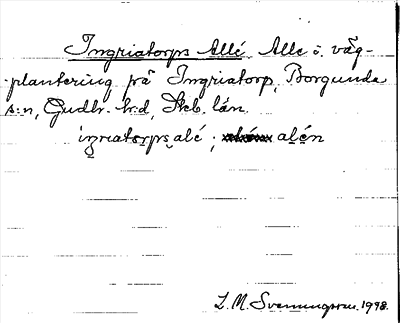 Ingriatorps Allé, Alle o. väg-
plantering på Ingriatorp, Borgunda
s:n, Gudh. h:d, Skb. län.
iŋriatorps alé; alén
L. M. Svennungsson. 1998.